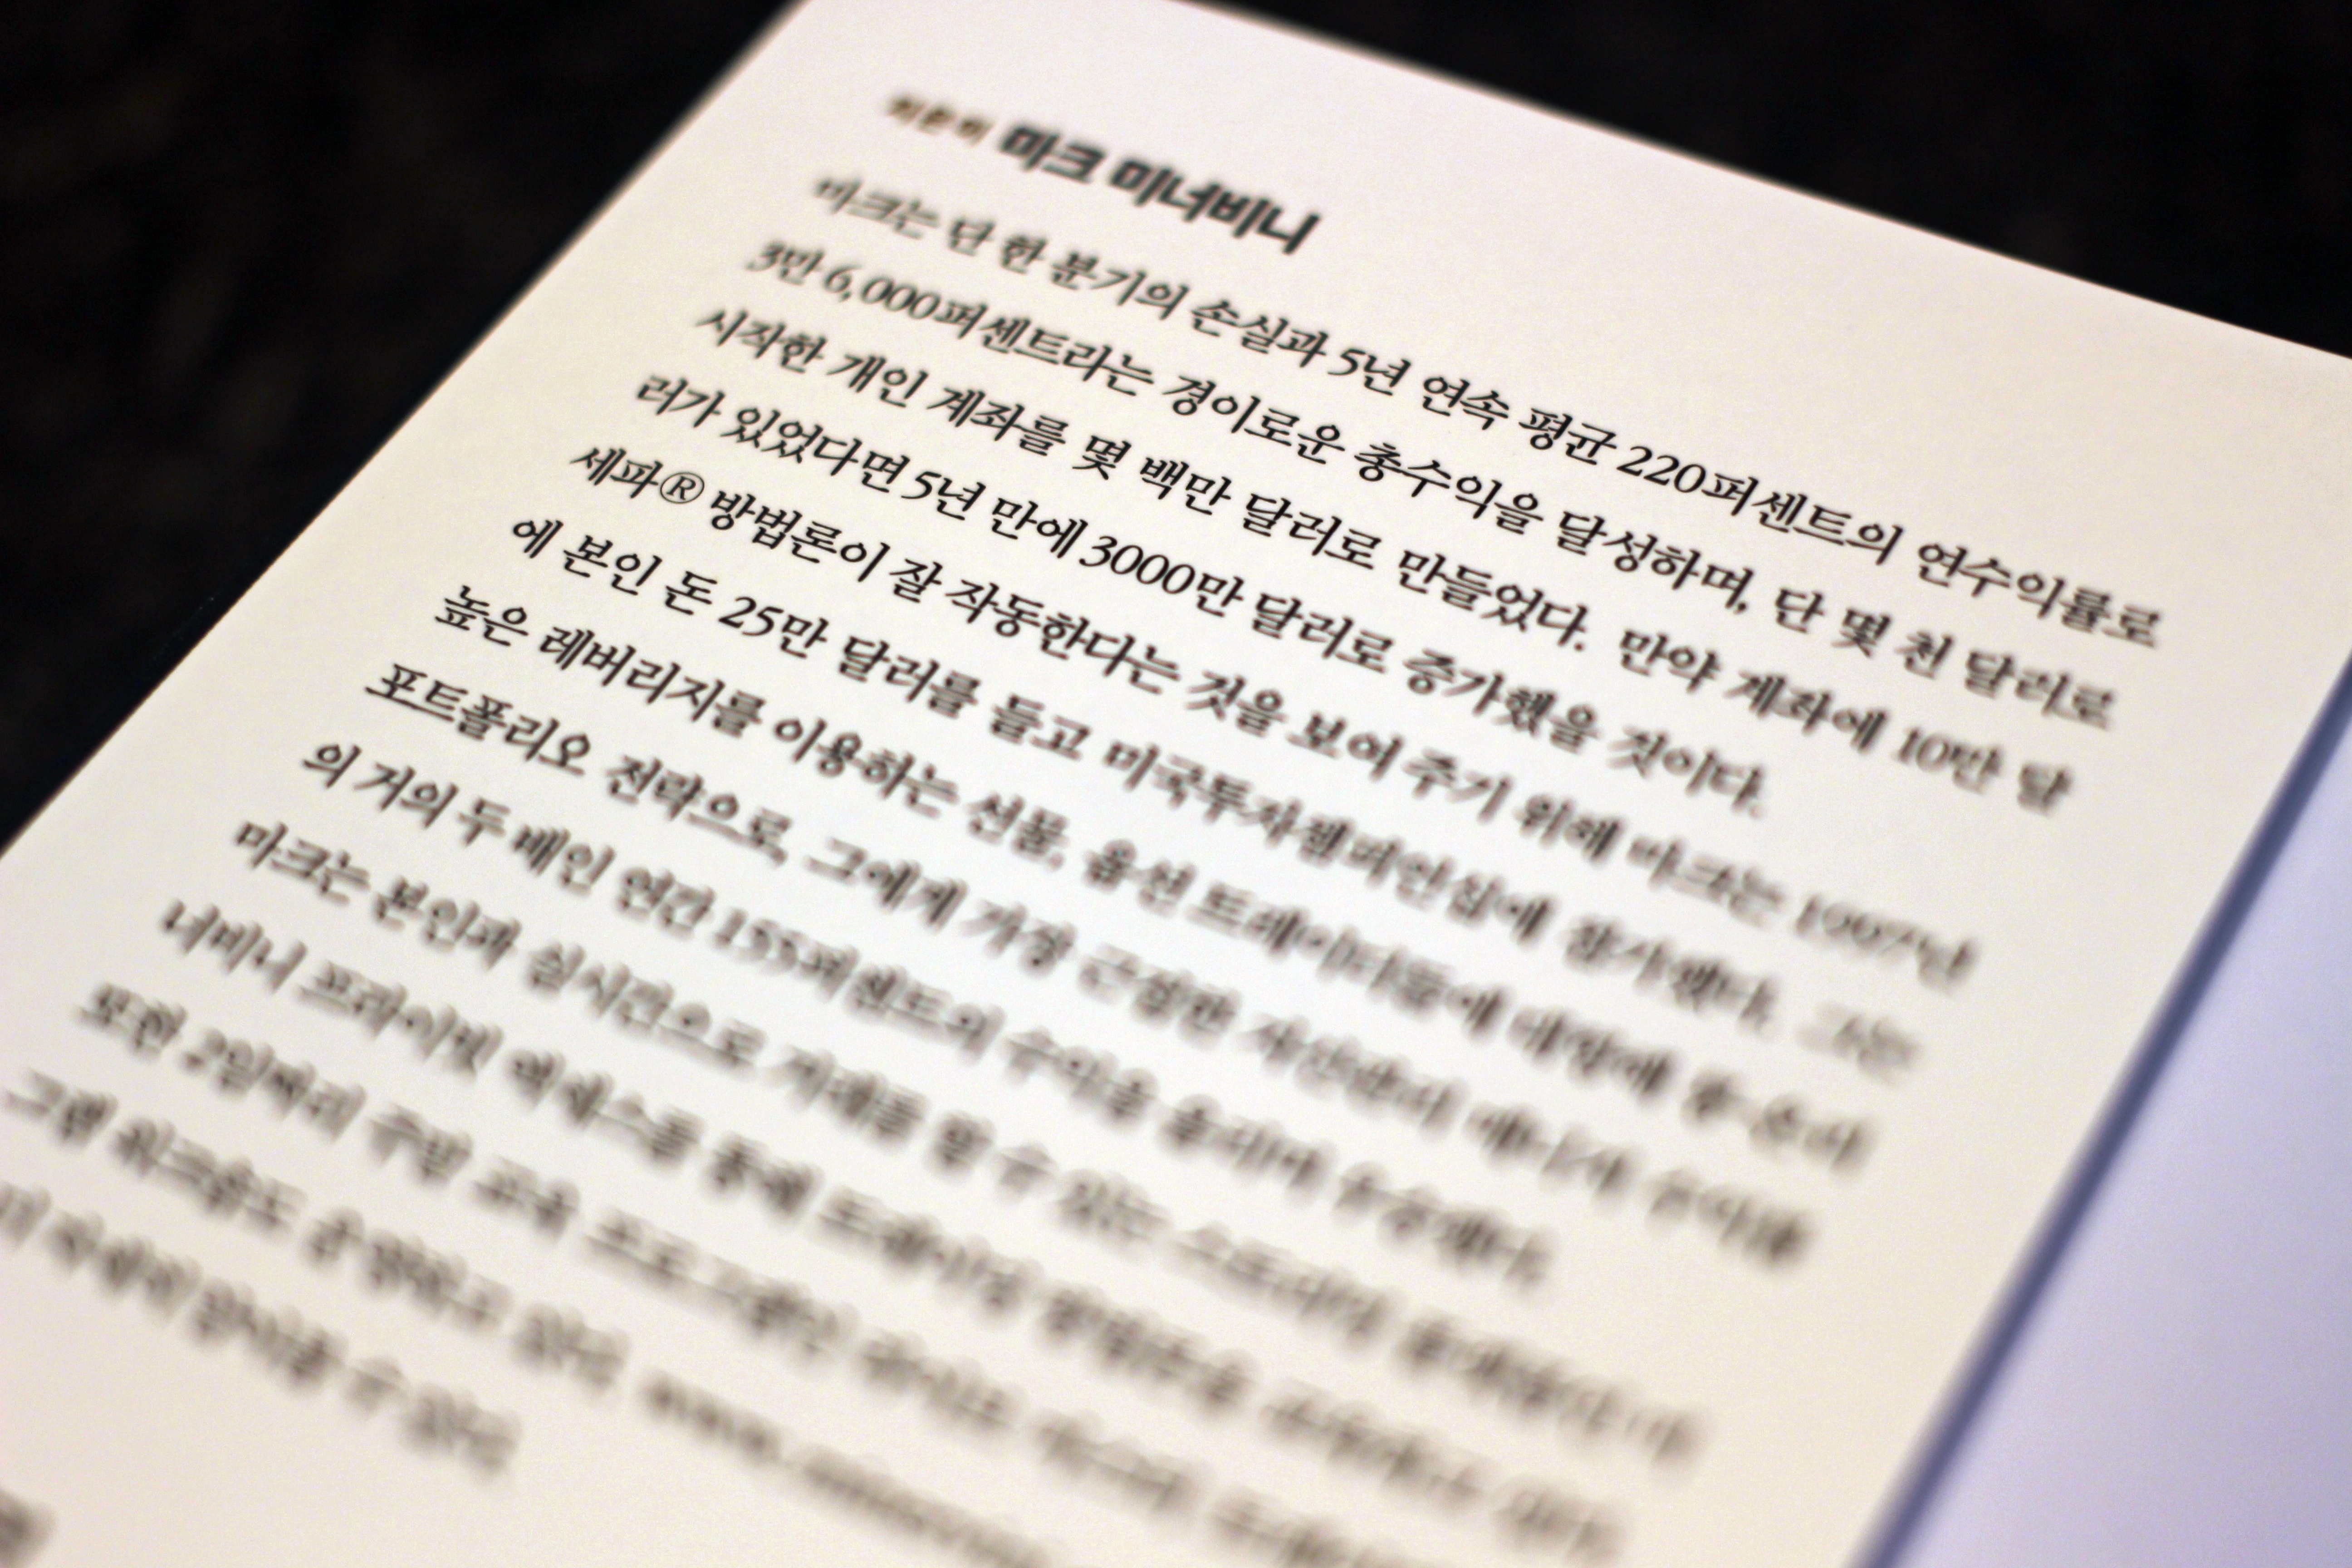 지은이 마크 미너비니
마크는 단 한 분기의 손실과 5년 연속 평균 220퍼센트의 연수익률로
3만 6,000퍼센트라는 경이로운 총수익을 달성하며, 단 몇 천 달러로
시작한 개인 계좌를 몇 백만 달러로 만들었다. 만약 계좌에 10만 달
러가 있었다면 5년 만에 3000만 달러로 증가했을 것이다.
세파® 방법론이 잘 작동한다는 것을 보여 주기 위해 마크는 1997년
에 본인 돈 25만 달러를 들고 미국투자챔피언십에 참가했다. 그는
높은 레버리지를 이용하는 선물, 옵션 트레이더들에 대항해
포트폴리오 전략으로, 그에게 가장 근접한 자산관리 매니저 수익률
의 거의 두 배인 연간 155퍼센트의 수익을 올리며 우승했다.
마크는 본인과 실시간으로 거래를 할 수 있는
너비니 프라이빗 액세스를 통해 트레이딩 방법론을
또한 2일짜리 주말 교육 프로그램인
그램 워크숍도 운영하고 있다.
자세히 알아볼 수 있다.